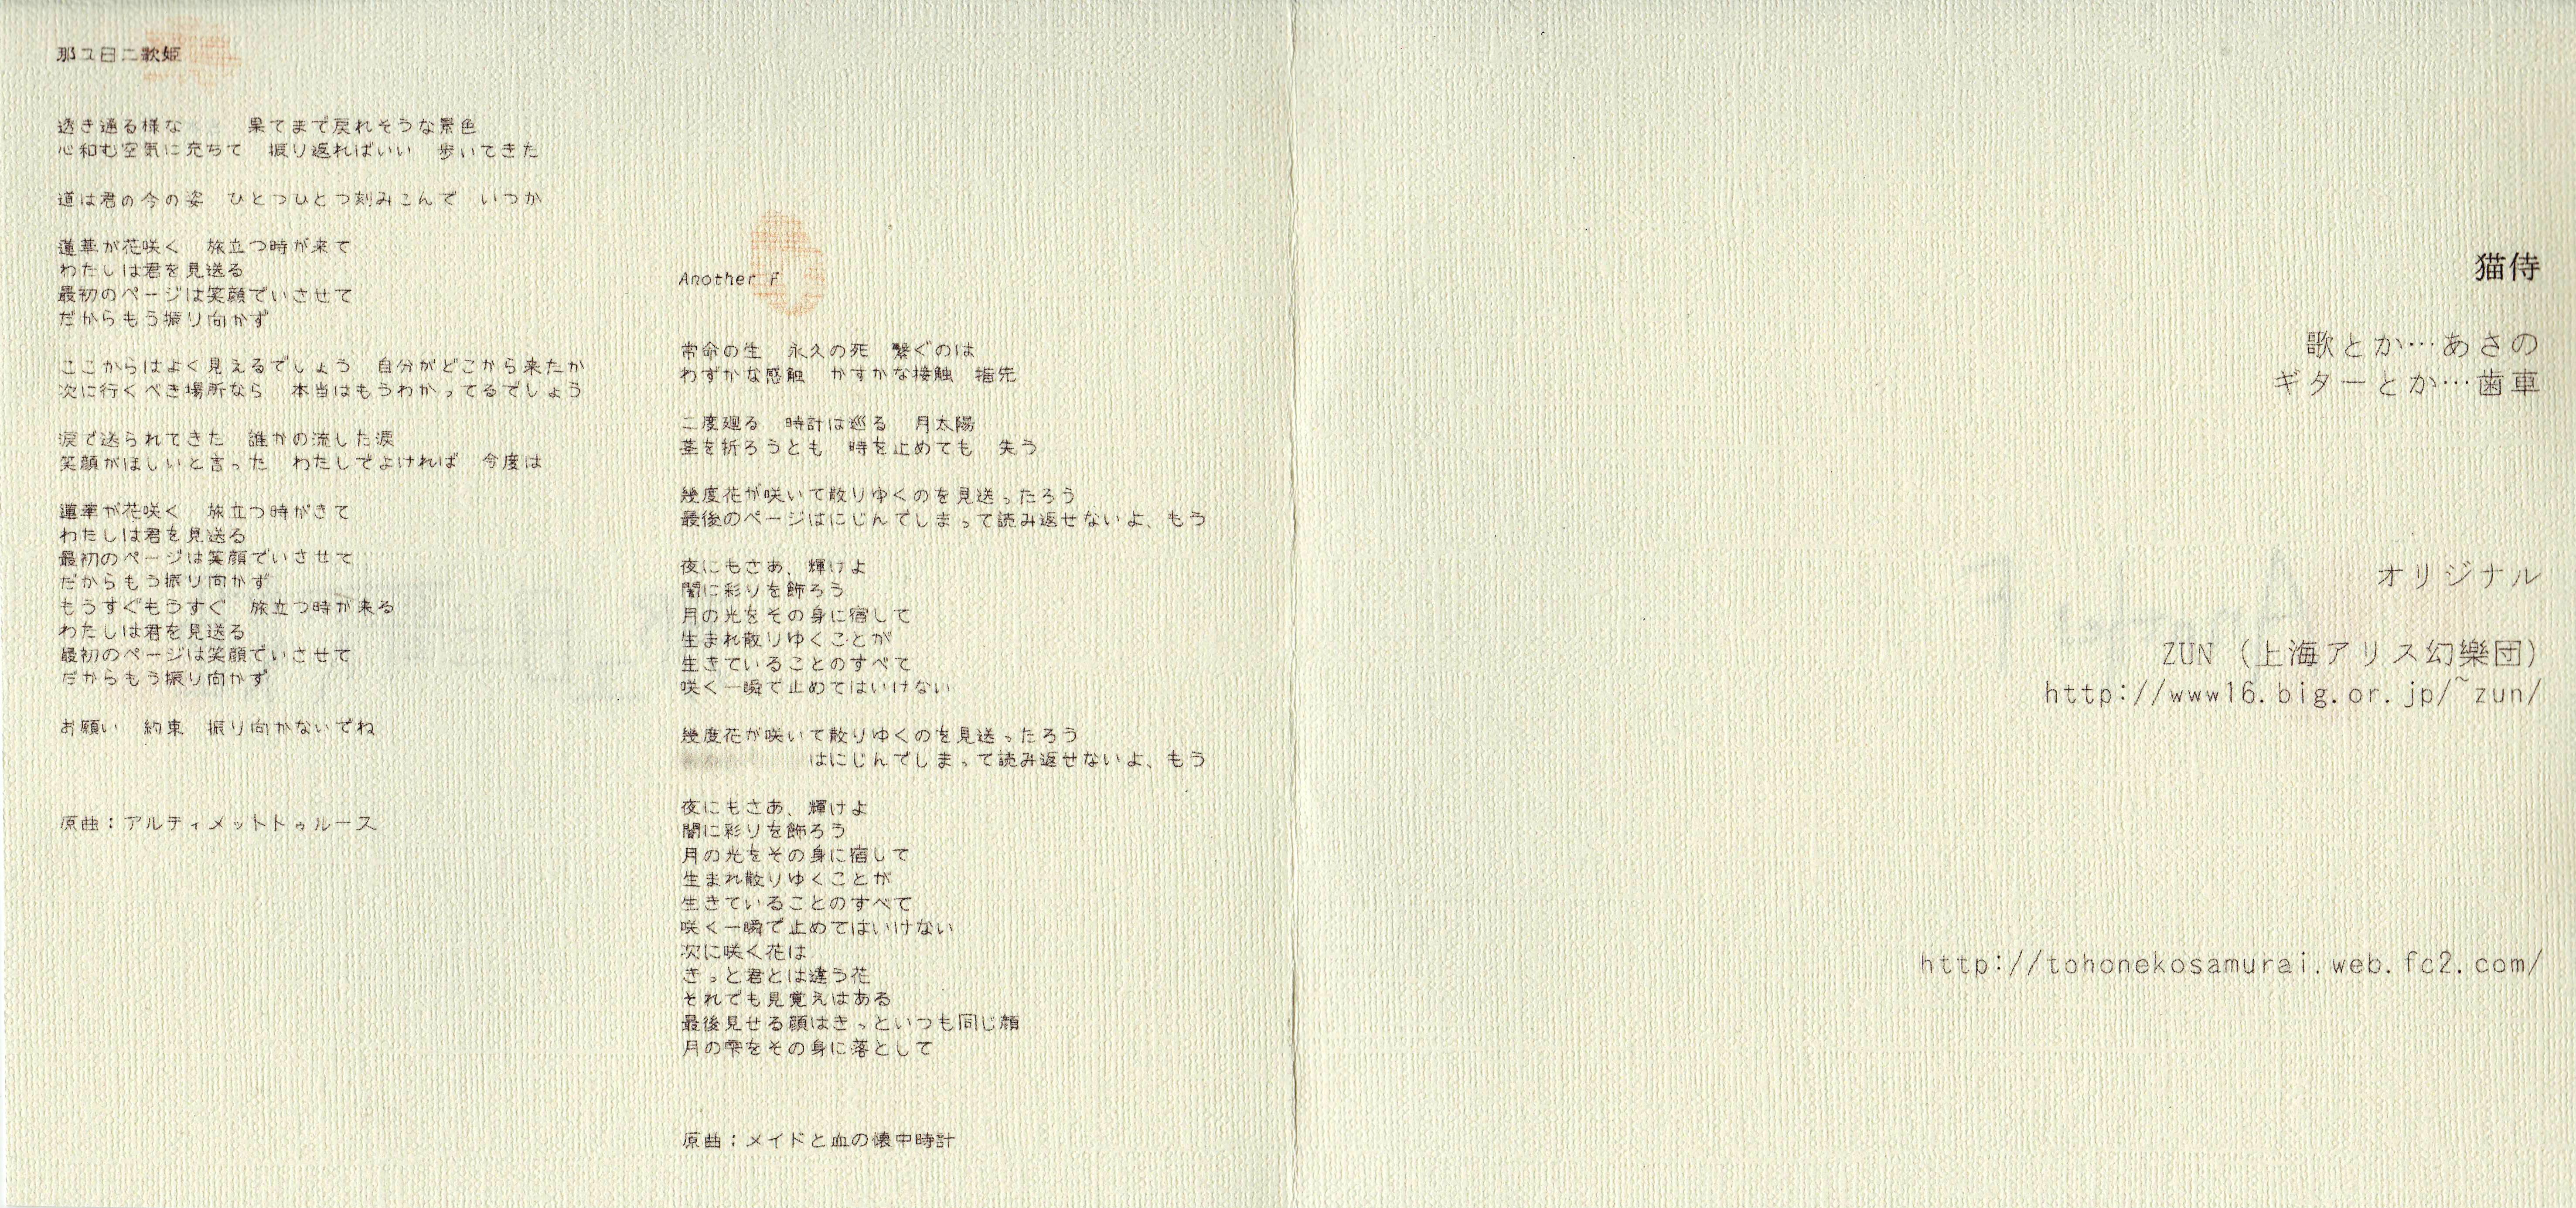 那ユ日ニ歌姫
透き通る様な　　　果てまで戻れそうな景色
心和む空気に充ちて　振り返ればいい　歩いてきた
道は君の今の姿　ひとつひとつ刻みこんで　いつか
蓮華が花咲く　旅立つ時が来て
わたしは君を見送る
最初のページは笑顔でいさせて
だからもう振り向かず
ここからはよく見えるでしょう　自分がどこから来たか
次に行くべき場所なら　本当はもうわかってるでしょう
涙で送られてきた　誰かの流した涙
笑顔がほしいと言った　わたしでよければ　今度は
蓮華が花咲く　旅立つ時がきて
わたしは君を見送る
最初のページは笑顔でいさせて
だからもう振り向かず
もうすぐもうすぐ　旅立つ時が来る
わたしは君を見送る
最初のページは笑顔でいさせて
だからもう振り向かず
お願い　約束　振り向かないでね
原曲：アルティメットトゥルース
Another F
常命の生　永久の死　繋ぐのは
わずかな感触　かすかな接触　指先
二度廻る　時計は巡る　月太陽
茎を折ろうとも　時を止めても　失う
幾度花が咲いて散りゆくのを見送ったろう
最後のページはにじんでしまって読み返せないよ、もう
夜にもさあ、輝けよ
闇に彩りを飾ろう
月の光をその身に宿して
生まれ散りゆくことが
生きていることのすべて
咲く一瞬で止めてはいけない
幾度花が咲いて散りゆくのを見送ったろう
はにじんでしまって読み返せないよ、もう
夜にもさあ、輝けよ
闇に彩りを飾ろう
月の光をその身に宿して
生まれ散りゆくことが
生きていることのすべて
咲く一瞬で止めてはいけない
次に咲く花は
きっと君とは違う花
それでも見覚えはある
最後見せる顔はきっといつも同じ顔
月の雫をその身に落として
原曲：メイドと血の懐中時計
猫侍
歌とか…あさの
ギターとか…歯車
オリジナル
ZUN（上海アリス幻樂団）
http://www16.big.or.jp/~zun/
http://tohonekosamurai.web.fc2.com/